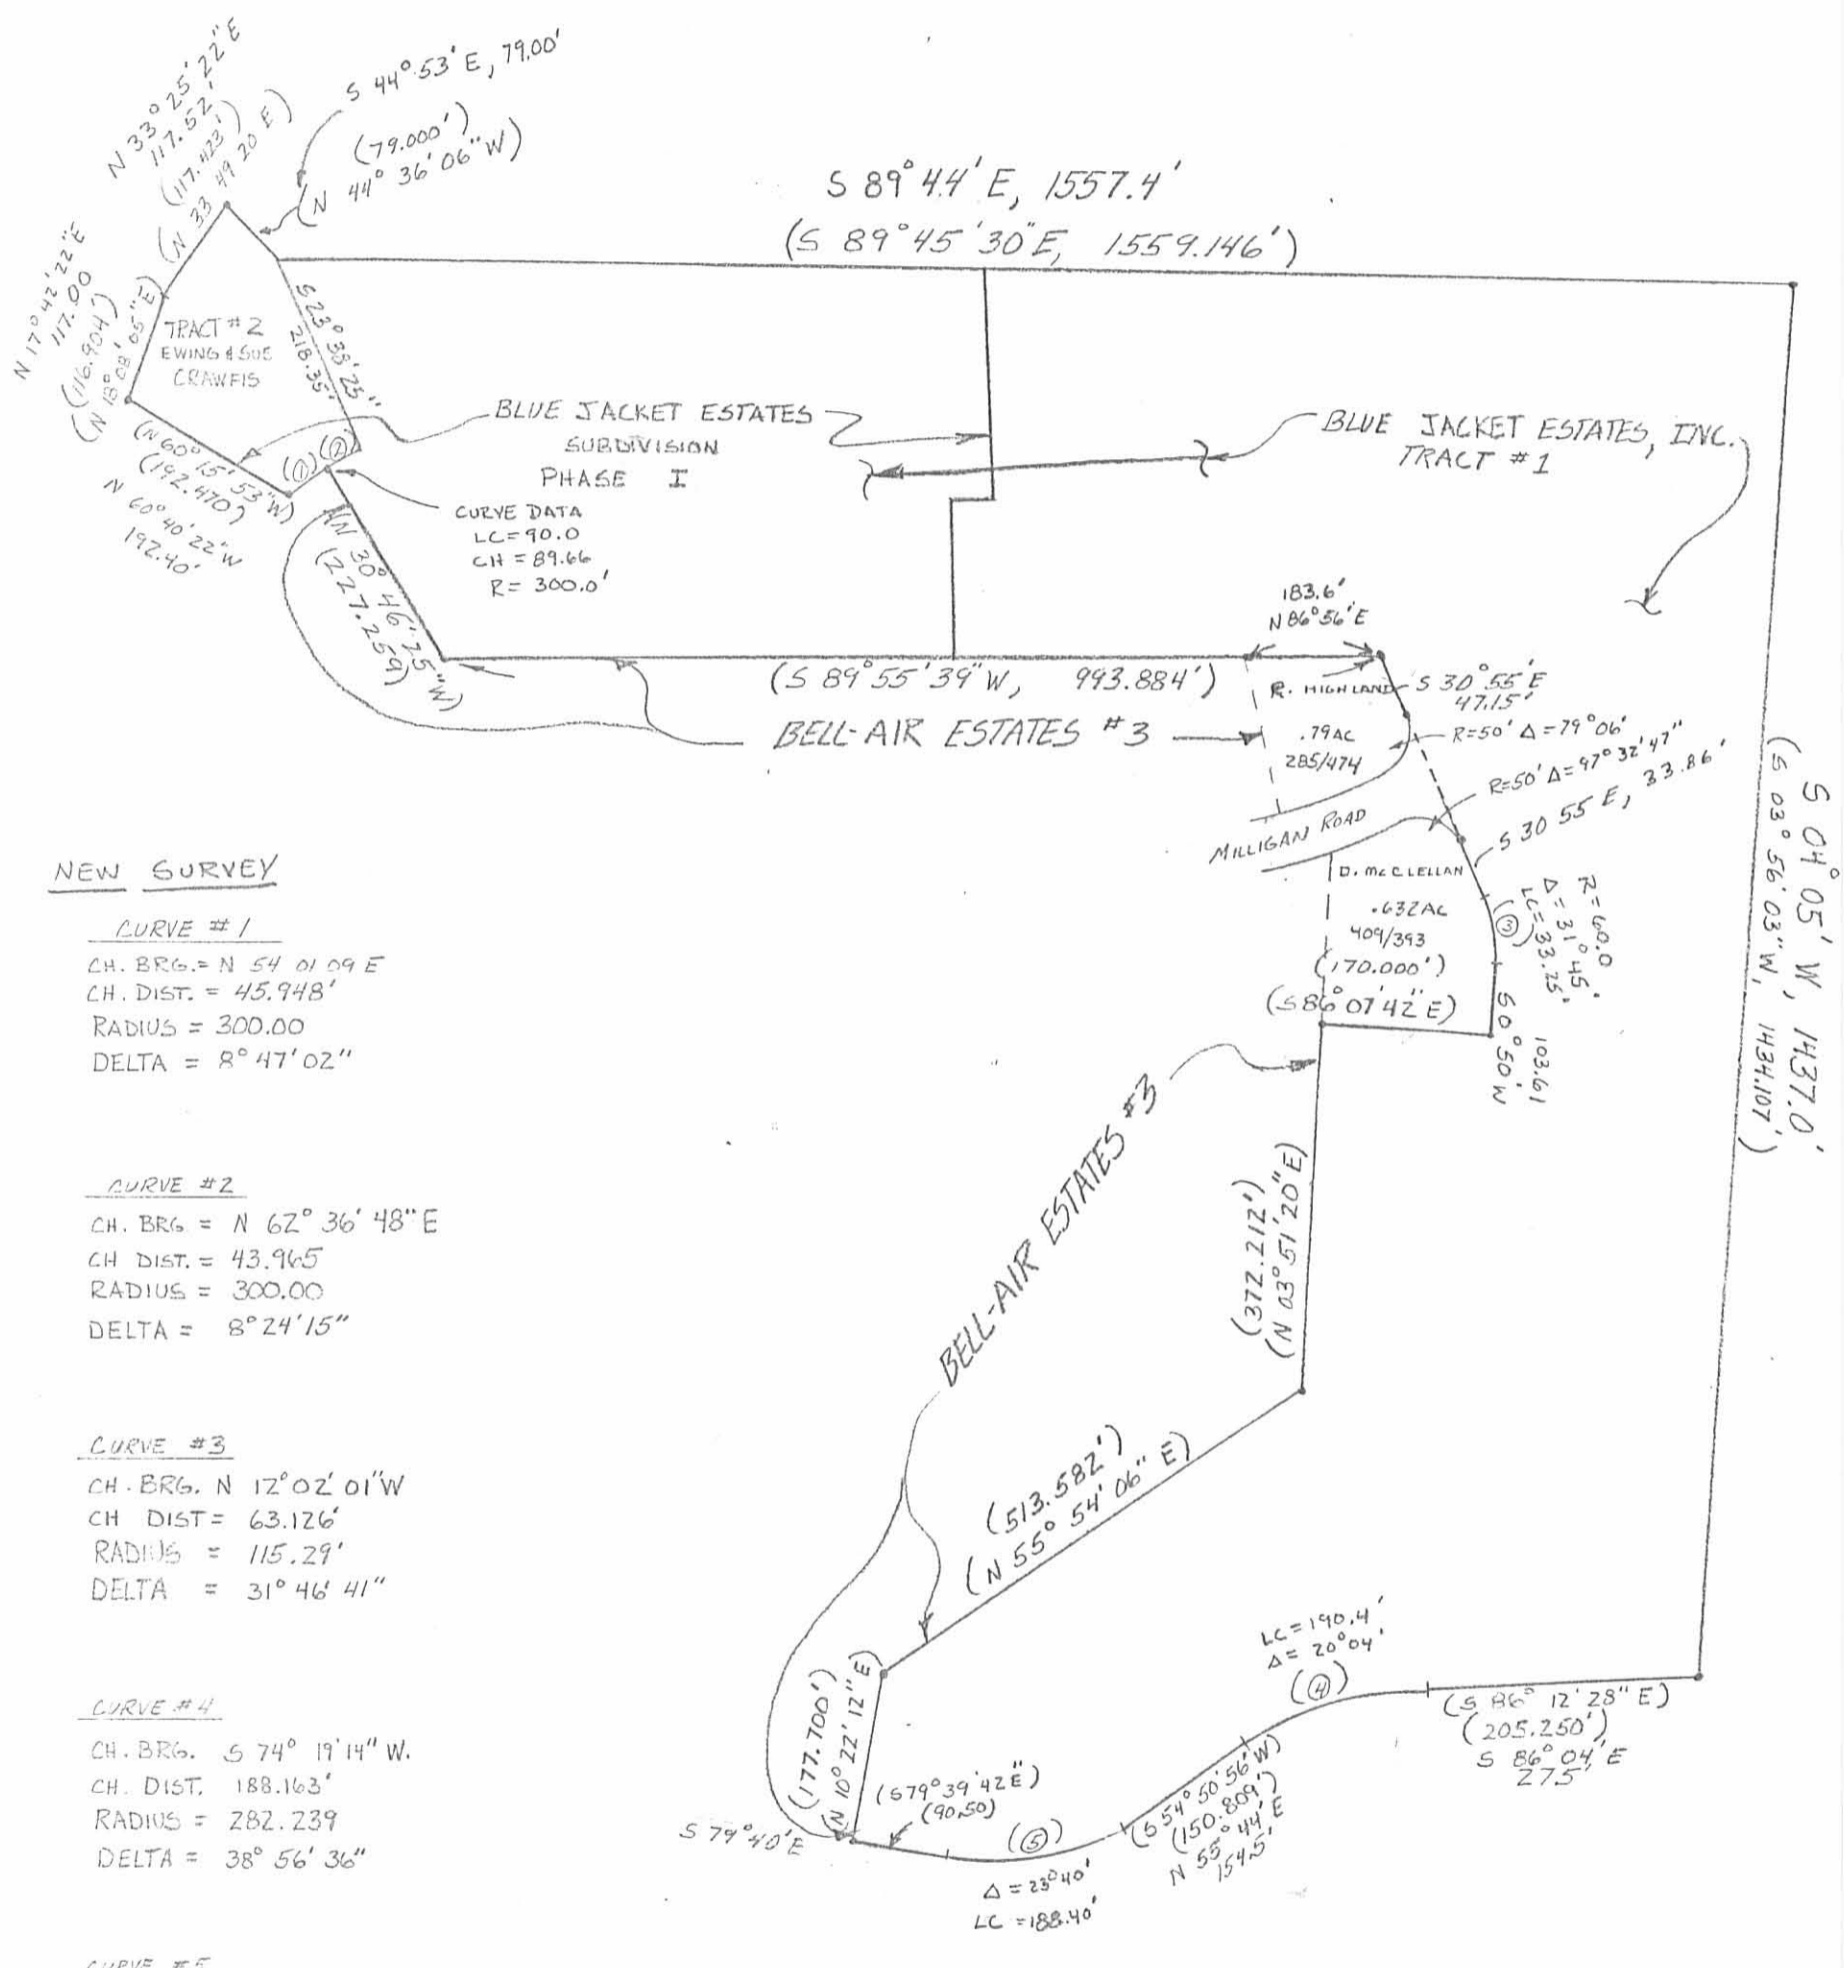 N 33° 25' 22" E
117.52'
(117.423')
(N 33 49 20 E)
S 44° 53' E, 79.00'
(79.000')
(N 44° 36' 06" W)
S 89° 44' E, 1557.4'
(S 89° 45' 30" E, 1559.146')
N 17° 42' 22" E
117.00
(116.904')
(N 18° 08' 05" E)
TRACT #2
EWING & SUE
CRAWFIS
S 23° 38' 25"
218.35'
(1)
(2)
(N 60° 15' 53" W)
(192.470)
N 60° 40' 22" W
192.40'
BLUE JACKET ESTATES
SUBDIVISION
PHASE I
BLUE JACKET ESTATES, INC.
TRACT #1
CURVE DATA
LC = 90.0
CH = 89.66
R = 300.0'
(N 30° 46' 25" W)
(227.259)
183.6'
N 86° 56' E
(S 89° 55' 39" W, 993.884')
BELL-AIR ESTATES #3
R. HIGHLAND
.79AC
285/474
S 30° 55' E
47.15'
R=50' Δ=79°06'
R=50' Δ=97°32'47"
S 30 55 E, 33.86'
MILLIGAN ROAD
D. McCLELLAN
.632AC
409/393
(170.000')
(S 86° 07' 42" E)
(3)
R=60.0
Δ=31°45'
LC=33.25'
103.61
S 0° 50 W
S 04° 05' W, 1437.0'
(S 03° 56' 03" W, 1434.107')
NEW SURVEY
CURVE #1
CH. BRG. = N 54 01 09 E
CH. DIST. = 45.948'
RADIUS = 300.00
DELTA = 8° 47' 02"
CURVE #2
CH. BRG = N 62° 36' 48" E
CH DIST. = 43.965
RADIUS = 300.00
DELTA = 8° 24' 15"
CURVE #3
CH. BRG. N 12° 02' 01" W
CH DIST = 63.126'
RADIUS = 115.29'
DELTA = 31° 46' 41"
CURVE #4
CH. BRG. S 74° 19' 14" W.
CH. DIST. 188.163'
RADIUS = 282.239
DELTA = 38° 56' 36"
CURVE #5
BELL-AIR ESTATES #3
(372.212')
(N 03° 51' 20" E)
(513.582')
(N 55° 54' 06" E)
(177.700')
(N 10° 22' 12" E)
S 79° 40' E
(S 79° 39' 42 E")
(90.50)
(5)
Δ = 23° 40'
LC = 188.40'
(S 54° 50' 56" W)
(150.809')
N 55° 44' E
154.5'
LC = 190.4'
Δ = 20° 04'
(4)
(S 86° 12' 28" E)
(205.250')
S 86° 04' E
275'